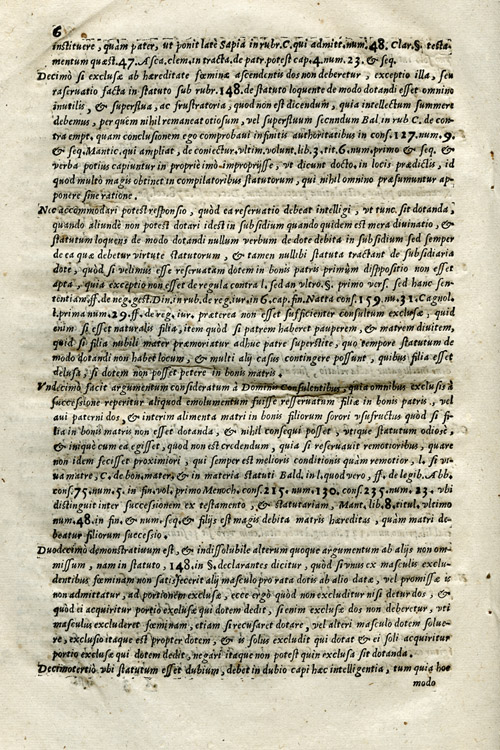 6
instituere, quàm pater, ut ponit latè Sapia in rubr. C. qui admitt. num. 48. Clar. §. testa-
mentum quæst. 47. Asca. clem. in tracta. de patr. potest cap. 4. num. 23. & seq.
Decimò si exclusæ ab hæreditate fœminæ ascendentis dos non deberetur, exceptio illa, seu
raseruatio facta in statuto sub rubr. 148. de statuto loquente de modo dotandi esset omnino
inutilis, & superflua, ac frustratoria; quod non est dicendum, quia intellectum summere
debemus, per quem nihil remaneat otiosum, vel superfluum secundum Bal. in rub C. de con
tra empt. quam conclusionem ego comprobaui infinitis authoritatibus in cons. 127. num. 9.
& seq. Mantic. qui ampliat, de coniectur. vltim. volunt. lib. 3. tit. 6. num. primo & seq. &
verba potius capiuntur in propriè imò impropriisse, vt dicunt docto. in locis prædictis, id
quod multò magis obtinet in compilatoribus statutorum, qui nihil omnino præsumuntur ap-
ponere sine ratione.
Nec accommodari potest responsio, quòd ea reservatio debeat intelligi, vt tunc sit dotanda,
quando aliundè non potest dotari idest in subsidium quando quidem est mera diuinatio, &
statutum loquens de modo dotandi nullum verbum de dote debita in subsidium sed semper
de ea quæ debetur virtute statutorum, & tamen nullibi statuta tractant de subsidiaria
dote, quòd si velimus esse reseruatam dotem in bonis patris primùm dispositio non esset
apta, quia exceptio non esset de regula contra l. sed an vltro. §. primo vers. sed hanc sen-
tentiam. ff. de neg. gest. Din, in rub. de reg. iur. in 6. cap. fin. Natta cons. 159. nu. 31. Cagnol.
l. prima num. 29. ff. de reg. iur. præterea non esset sufficienter consultum exclusæ, quid
enim si esset naturalis filia, item quòd si patrem haberet pauperem, & matrem diuitem,
quid si filia nubili mater præmoriatur adhuc patre superstite, quo tempore statutum de
modo dotandi non habet locum, & multi alij casus contingere possunt, quibus filia esset
delusa, si dotem non posset petere in bonis matris.
Vndecimò facit argumentum consideratum à Dominis Consulentibus, quia omnibus exclusis à
successione reperitur aliquod emolumentum fuisse resseruatum filiæ in bonis patris, vel
aui paterni dos, & interim alimenta matri in bonis filiorum sorori vsufructus quòd si fi-
lia in bonis matris non esset dotanda, & nihil consequi posset, vtique statutum odiosè,
& iniquè cum ea egisset, quod non est credendum, quia si reseruauit remotioribus, quare
non idem fecisset proximiori, qui semper est melioris conditionis quàm remotior, l. si vi-
ua matre, C. de bon. mater. & in materia statuti Bald. in l. quod vero, ff. de legib. Abb.
cons. 75. num. 5. in fin. vol. primo Menoch. cons. 215. num. 130. cons. 235. num. 23. vbi
distinguit inter successionem ex testamento, & statutariam, Mant. lib. 8. titul. vltimo
num. 48. in fin. & num. seq. & filijs est magis debita matris hæreditas, quàm matri de-
beatur filiorum successio.
Duodecimò demonstratiuum est, & indissolubile alterum quoque argumentum ab alijs non om-
missum, nam in statuto, 148. in §. declarantes dicitur, quòd si vnus ex masculis exclu-
dentibus fœminam non satisfecerit alij masculo pro rata dotis ab alio datæ, vel promissæ is
non admittatur, ad portionem exclusæ, ecce ergò quòd non excluditur nisi detur dos, &
quòd ei acquiritur portio exclusæ qui dotem dedit, si enim exclusæ dos non deberetur, vti
masculus excluderet fœminam, etiam si recusaret dotare, vel alteri masculo dotem solue-
re, exclusio itaque est propter dotem, & is solus excludit qui dotat & ei soli acquiritur
portio exclusæ qui dotem dedit, negari itaque non potest quin exclusa sit dotanda.
Decimotertiò vbi statutum esset dubium, debet in dubio capi hæc intelligentia, tum quia hoc
modo